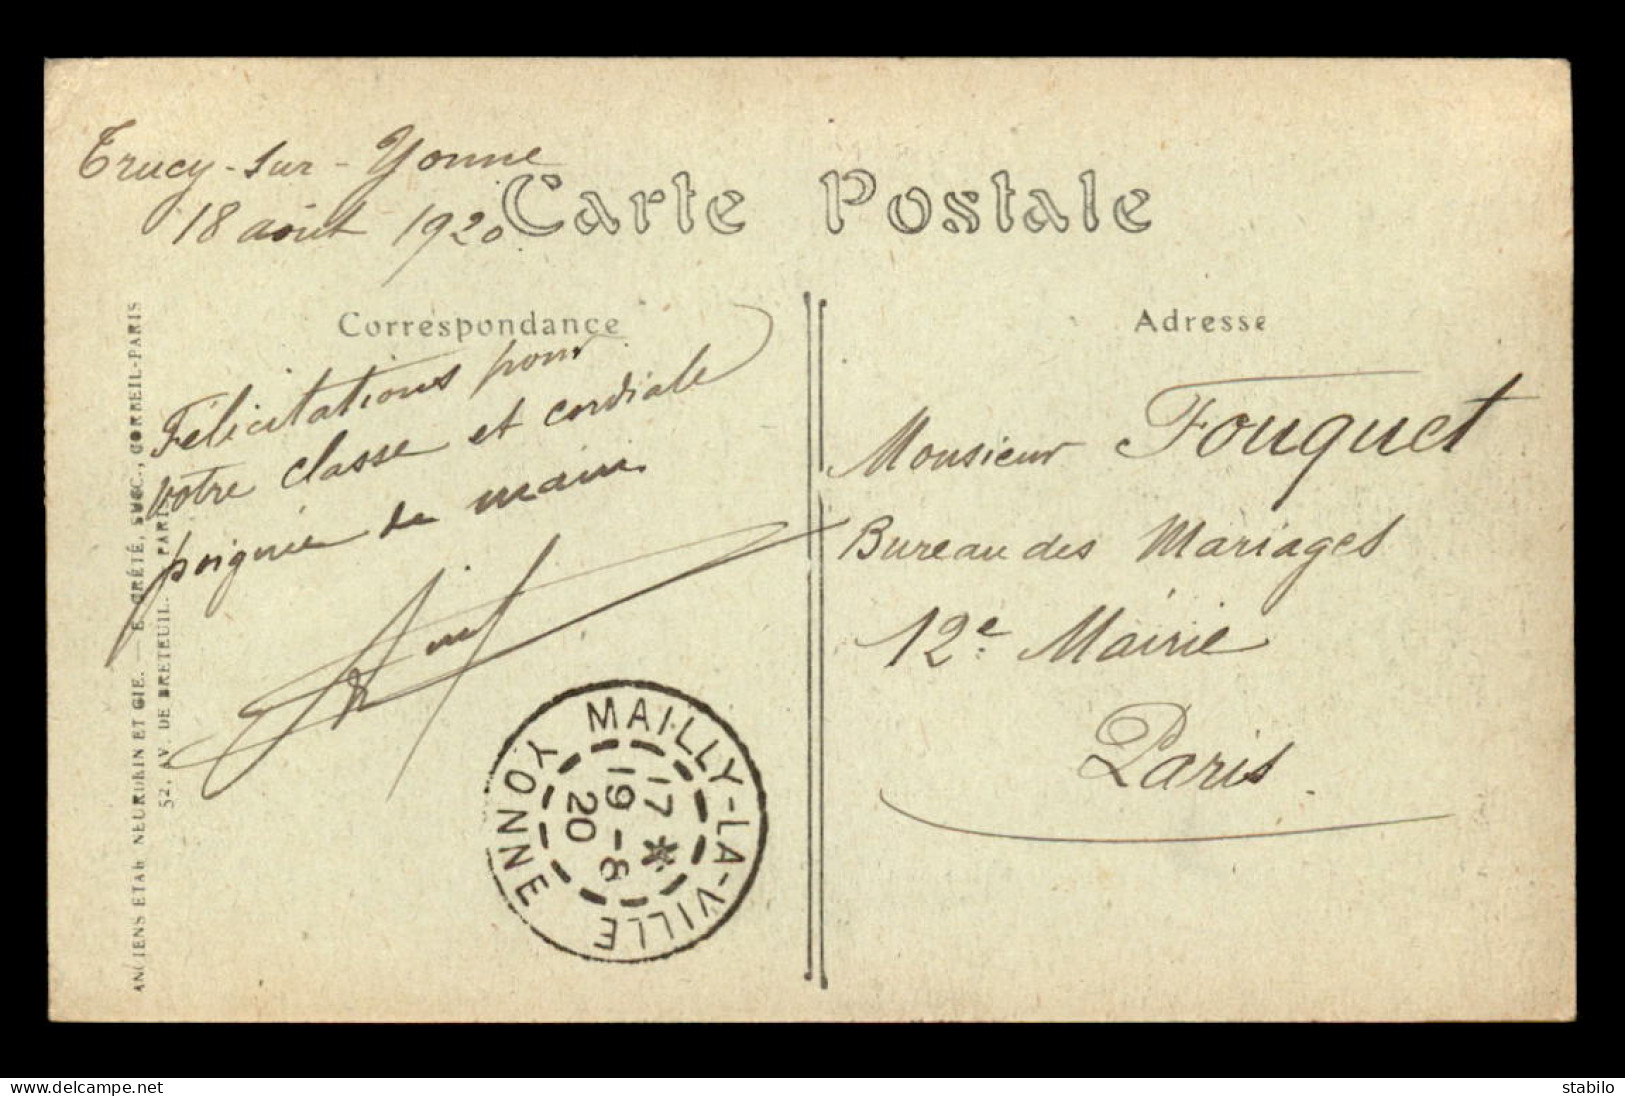 Trucy-sur-Yonne
18 août 1920
Carte Postale
Correspondance
Félicitations pour
votre classe et cordiale
poignée de main.
Adresse
Monsieur Fouquet
Bureau des Mariages
12e Mairie
Paris.
MAILLY-LA-VILLE
YONNE
17 *
19-8
20
ANCIENS ETAB. NEURDEIN ET CIE. — E. CRÉTÉ, SUCC., CORBEIL-PARIS
52, AV. DE BRETEUIL. PARIS
delcampe.net
stabilo